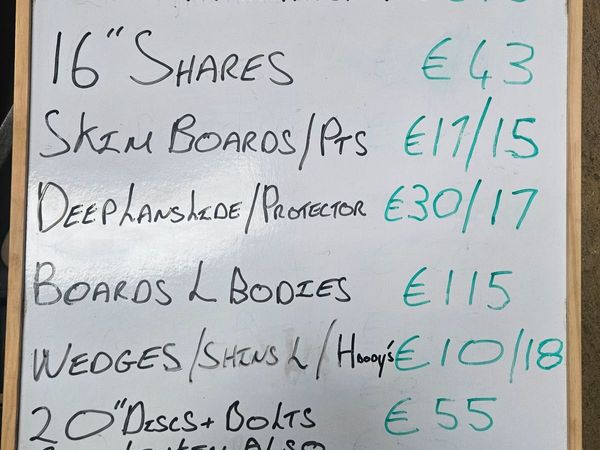 16" SHARES €43
SKIM BOARDS/PTS €17/15
DEEP LANSLIDE/PROTECTOR €30/17
BOARDS L BODIES €115
WEDGES/SHINS L/Hoooy's €10/18
20" DISCS + BOLTS €55
ALSO